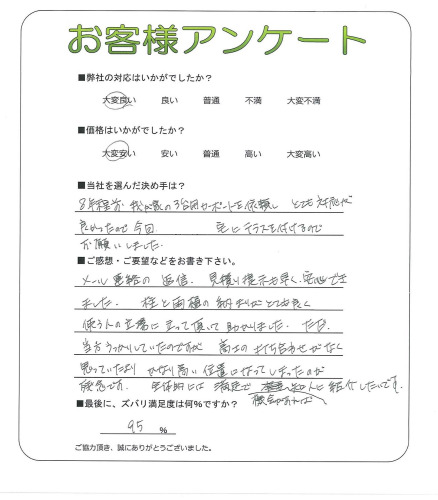 お客様アンケート
■弊社の対応はいかがでしたか?
大変良い 良い 普通 不満 大変不満
■価格はいかがでしたか?
大変安い 安い 普通 高い 大変高い
■当社を選んだ決め手は?
8年程前 我が家の3台用カーポートを依頼し とても対応が
良かったので今回 宅にテラスを付けるので
お願いしました
■ご感想・ご要望などをお書き下さい。
メール連絡の返信、見積り提示も早く安心でき
ました。 柱と雨樋の納まりがとても良く
使う人の立場に立って頂いて助かりました。ただ、
当方うっかりしていたのですが 高さの打ち合わせがなく
思っていたより かなり高い位置になってしまったのが
残念です。 全体的には満足で 知人に紹介したいです。
機会があれば
■最後に、ズバリ満足度は何%ですか?
95 %
ご協力頂き、誠にありがとうございました。